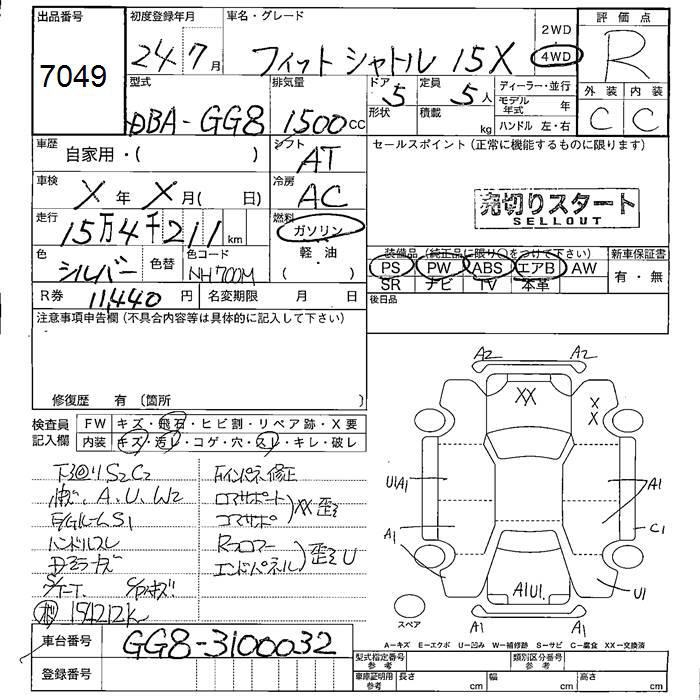 出品番号
7049
初度登録年月
24 7 月
車名・グレード
フィットシャトル 15X
2WD
4WD
評価点
R
型式
DBA-GG8
排気量
1500 cc
ドア
5
形状
定員
5 人
積載
kg
ディーラー・並行
モデル年式 年
ハンドル 左・右
外装 内装
C C
車歴
自家用・( )
シフト
AT
セールスポイント(正常に機能するものに限ります)
車検
X 年 X 月( 日)
冷房
AC
売切りスタート
SELLOUT
走行
15万4千211 km
燃料
ガソリン
軽油
( )
色
シルバー
色替
色コード
NH700M
装備品(純正品に限り○をつけて下さい)
PS PW ABS エアB AW
SR ナビ TV 本革
新車保証書
有・無
R券 11440 円
名変期限 月 日
後日品
注意事項申告欄(不具合内容等は具体的に記入して下さい)
修復歴 有 〔箇所 〕
検査員記入欄
FW キズ・飛石・ヒビ割・リペア跡・X要
内装 キズ・汚レ・コゲ・穴・スレ・キレ・破レ
下回りS2C2
A、U、W2
E/GルームS1
ハンドルスレ
154212K
Fインパネ修正
コアサポート
XX 歪
Rフロアー
エンドパネル
歪 U
A2 A2
XX
X
X
U1A1
A1
A1
C1
A1U1
U1
A1 A1
スペア
A-キズ E-エクボ U-凹み W-補修跡 S-サビ C-腐食 XX-交換済
車台番号
GG8-3100032
登録番号
型式指定番号
参考
類別区分番号
参考
車庫証明用
参考
長さ cm
幅 cm
高さ cm